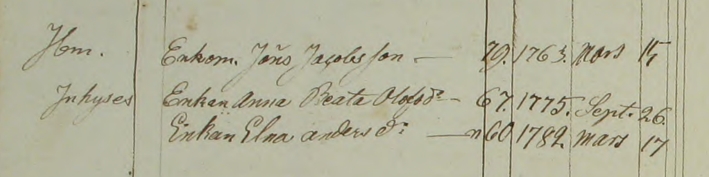 Hm. Enkom. Jöns Jacobsson — 79. 1763. Mars 15
Inhyses Enkan Anna Beata Olofsdr — 67. 1775. Sept. 26.
Enkan Elna Anders dr — 60 1782 Mars 17